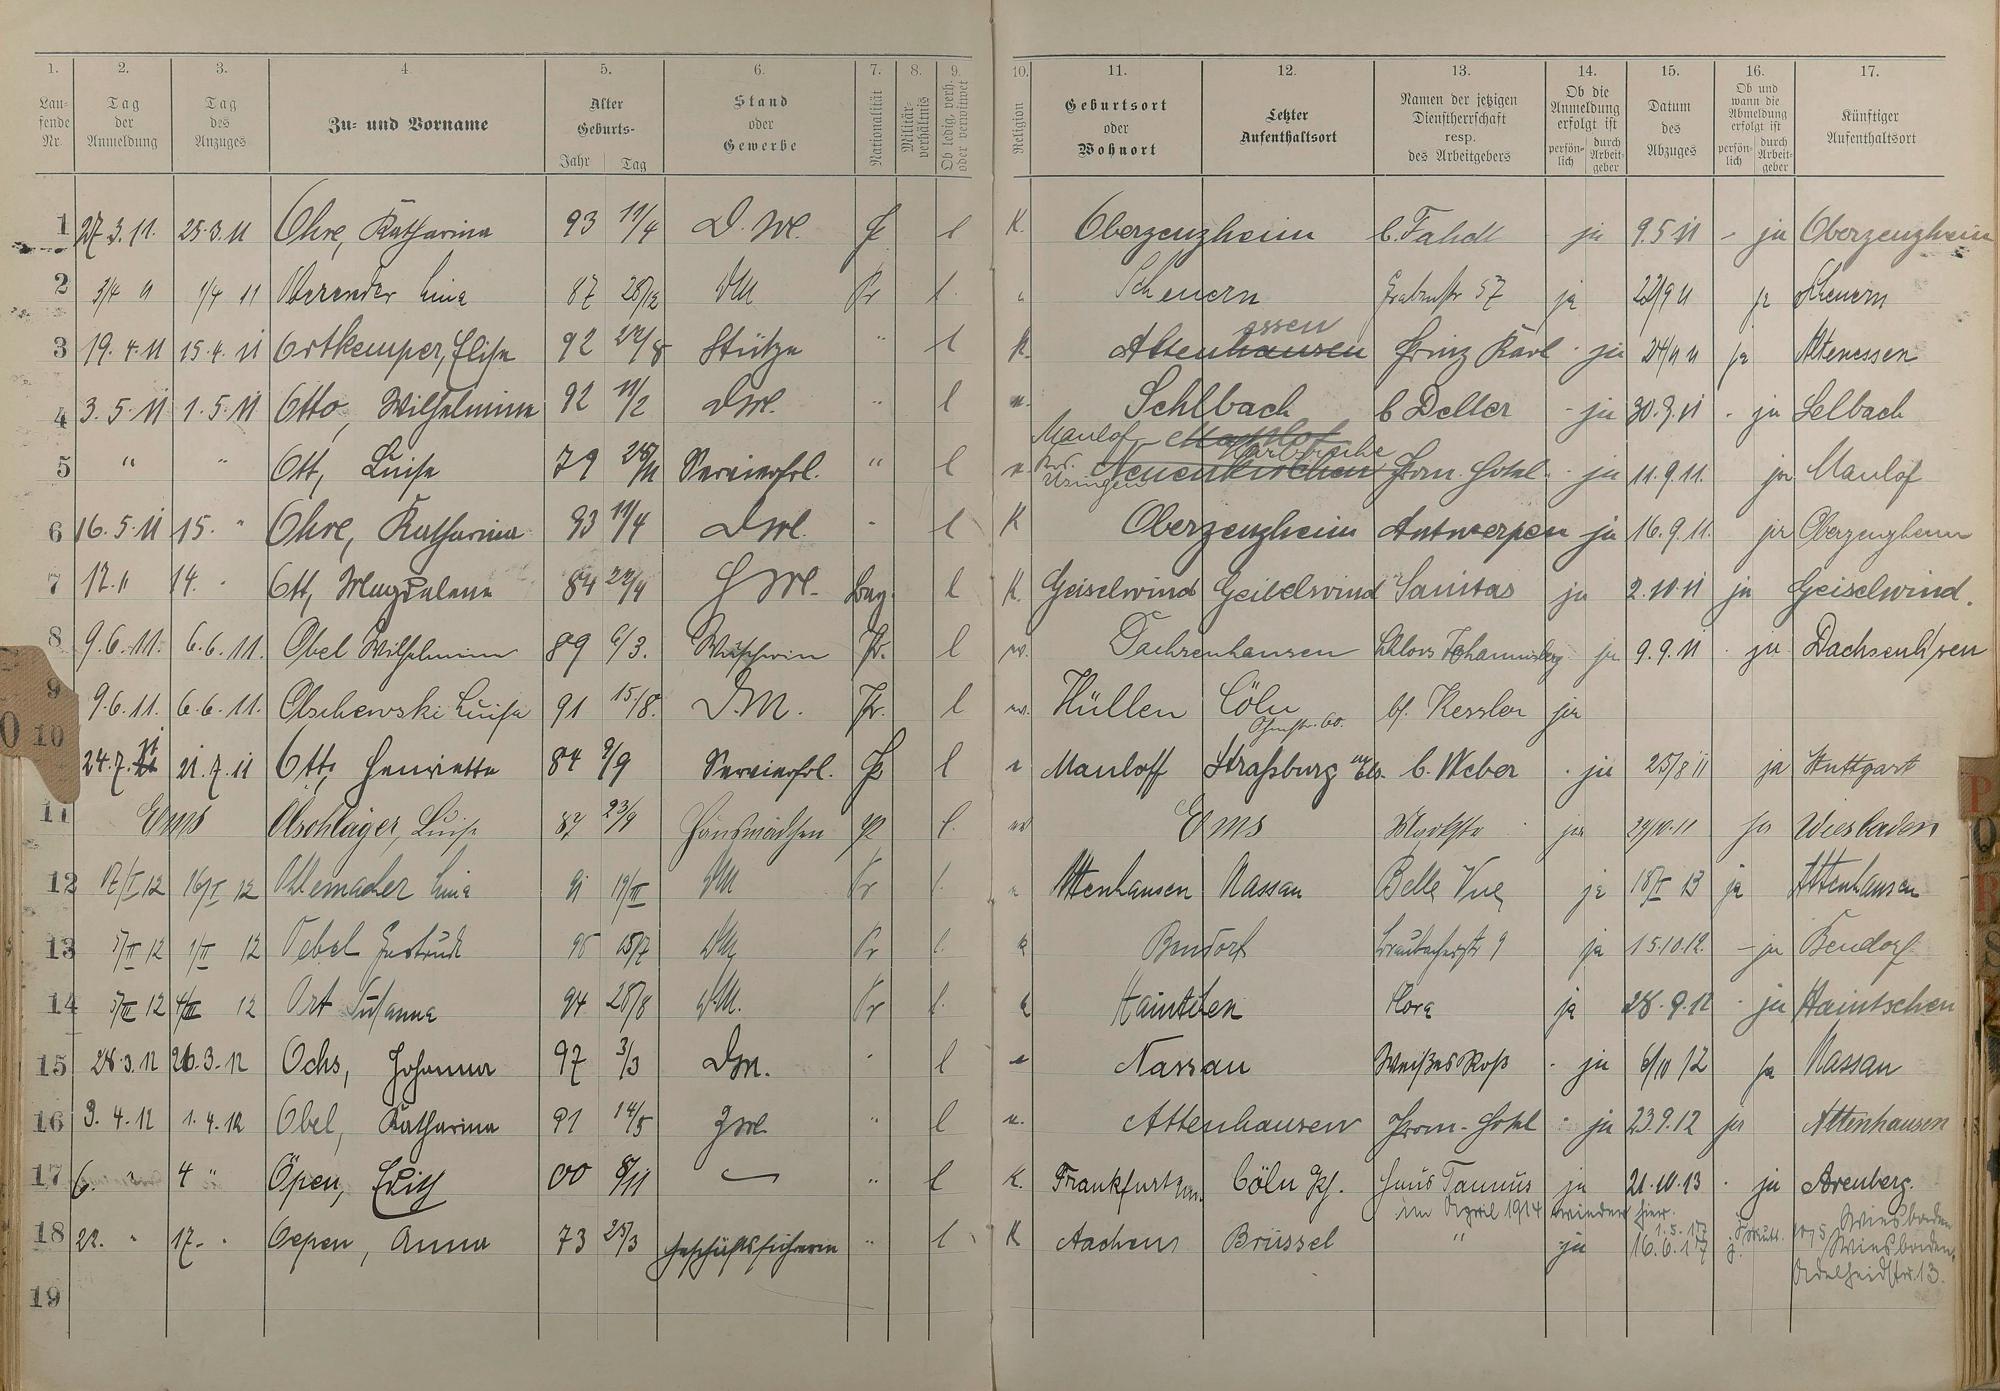 1. 2. 3. 4. 5. 6. 7. 8. 9. 10. 11. 12. 13. 14. 15. 16. 17.
Lau-
fende
Nr.
Tag
der
Anmeldung
Tag
des
Anzuges
Zu- und Vorname
Alter
Geburts-
Jahr Tag
Stand
oder
Gewerbe
Nationalität
Militär-
verhältnis
Ob ledig, verh.
oder verwitwet
Religion
Geburtsort
oder
Wohnort
Letzter
Aufenthaltsort
Namen der jetzigen
Dienstherrschaft
resp.
des Arbeitgebers
Ob die
Anmeldung
erfolgt ist
persön-
lich
durch
Arbeit-
geber
Datum
des
Abzuges
Ob und
wann die
Abmeldung
erfolgt ist
persön-
lich
durch
Arbeit-
geber
Künftiger
Aufenthaltsort
1 27.3.11. 25.3.11 Ohre, Katharina 93 11/4 l K. Oberzeuzheim ja 9.5.11 - ja Oberzeuzheim
2 3/4 11 1/4 11 Oberender Lina 87 28/12 DM Pr l. Scheuern Grabenstr 57 ja 22/9 11 ja Scheuern
3 19.4.11 15.4.11 Ortkemper, Elise 92 22/8 Stütze " l K. Altenhausen essen Prinz Karl ja 24/9 11 ja Altenessen
4 3.5.11 1.5.11 Otto, Wilhelmine 92 11/2 " l Sehlbach b Deller - ja 30.9.11 - ja Selbach
5 " " Ott, Luise 79 Servierfrl. " l Maulof Usingen Neuenkirchen Prom. Hotel ja 11.9.11. ja Maulof
6 16.5.11 15. " Ohre, Katharina 93 11/4 " l K Oberzeuzheim Antwerpen ja 16.9.11. ja Oberzeuzheim
7 17." 14. " Ott, Magdalena 84 22/4 Bay. l K. Geiselwind Geiselwind Sanitas ja 2.10.11 ja Geiselwind.
8 9.6.11. 6.6.11. Obel Wilhelmine 89 6/3. Wäscherin Pr. l Dachsenhausen Schloss Johannisberg ja 9.9.11 - ja Dachsenh/sen
9 9.6.11. 6.6.11. Olschewski Luise 91 15/8. D.M. Pr. l Hüllen Cöln bf. Kessler ja
10 24.7.11 21.7.11 Ott, Henriette 84 9/9 Servierfrl. l Mauloff Straßburg b. Weber - ja 25/8 11 ja Stuttgart
11 Ems Olschläger, Luise 87 23/9 Hausmädchen l. Ems ja 29/10.11 ja Wiesbaden
12 17/I 12 16/I 12 Uhlemacher Lina 91 19/II DM Pr l. Attenhausen Nassau Belle Vue ja 18/I 13 ja Attenhausen
13 5/II 12 1/II 12 Oebel Gertrude 95 15/7 Pr l. Bendorf ja 15.10.12. - ja Bendorf
14 5/III 12 4/III 12 Ort Susanna 94 28/8 D.M. Pr l. Flora ja 28.9.12 - ja Haintschen
15 28.3.12 26.3.12 Ochs, Johanna 97 3/3 Dm. " l Nassau Weißes Roß - ja 6/10 12 ja Nassau
16 3.4.12 1.4.12 Obel, Katharina 91 14/5 " l Attenhausen Prom.-Hotel - ja 23.9.12 ja Attenhausen
17 6. " 4 " Öpen, Edith 00 8/11 — " l K. Frankfurt a/m. Cöln Rh. Haus Taunus ja 21.10.13 - ja Arenberg.
im April 1914 wieder hier.
18 22. " 17. " Oepen, Anna 73 25/3 Geschäftsführerin " l K Aachen Brüssel " ja 1.5.17 16.6.17 Wiesbaden
Wiesbaden,
Adelheidstr. 13.
19
P
O